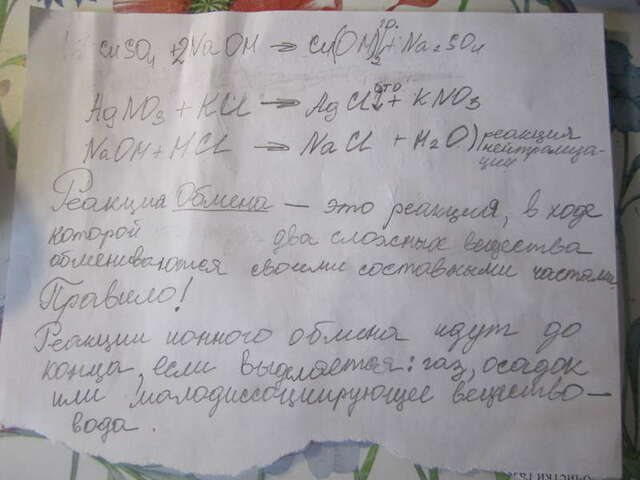 CuSO4 + 2NaOH → Cu(OH)2↓ + Na2SO4
AgNO3 + KCl → AgCl↓ + KNO3
NaOH + HCl → NaCl + H2O) реакция нейтрализа-
ции
Реакция Обмена — это реакция, в ходе
которой два сложных вещества
обмениваются своими составными частями
Правило!
Реакции ионного обмена идут до
конца, если выделяется: газ, осадок
или малодиссоциирующее вещество —
вода.